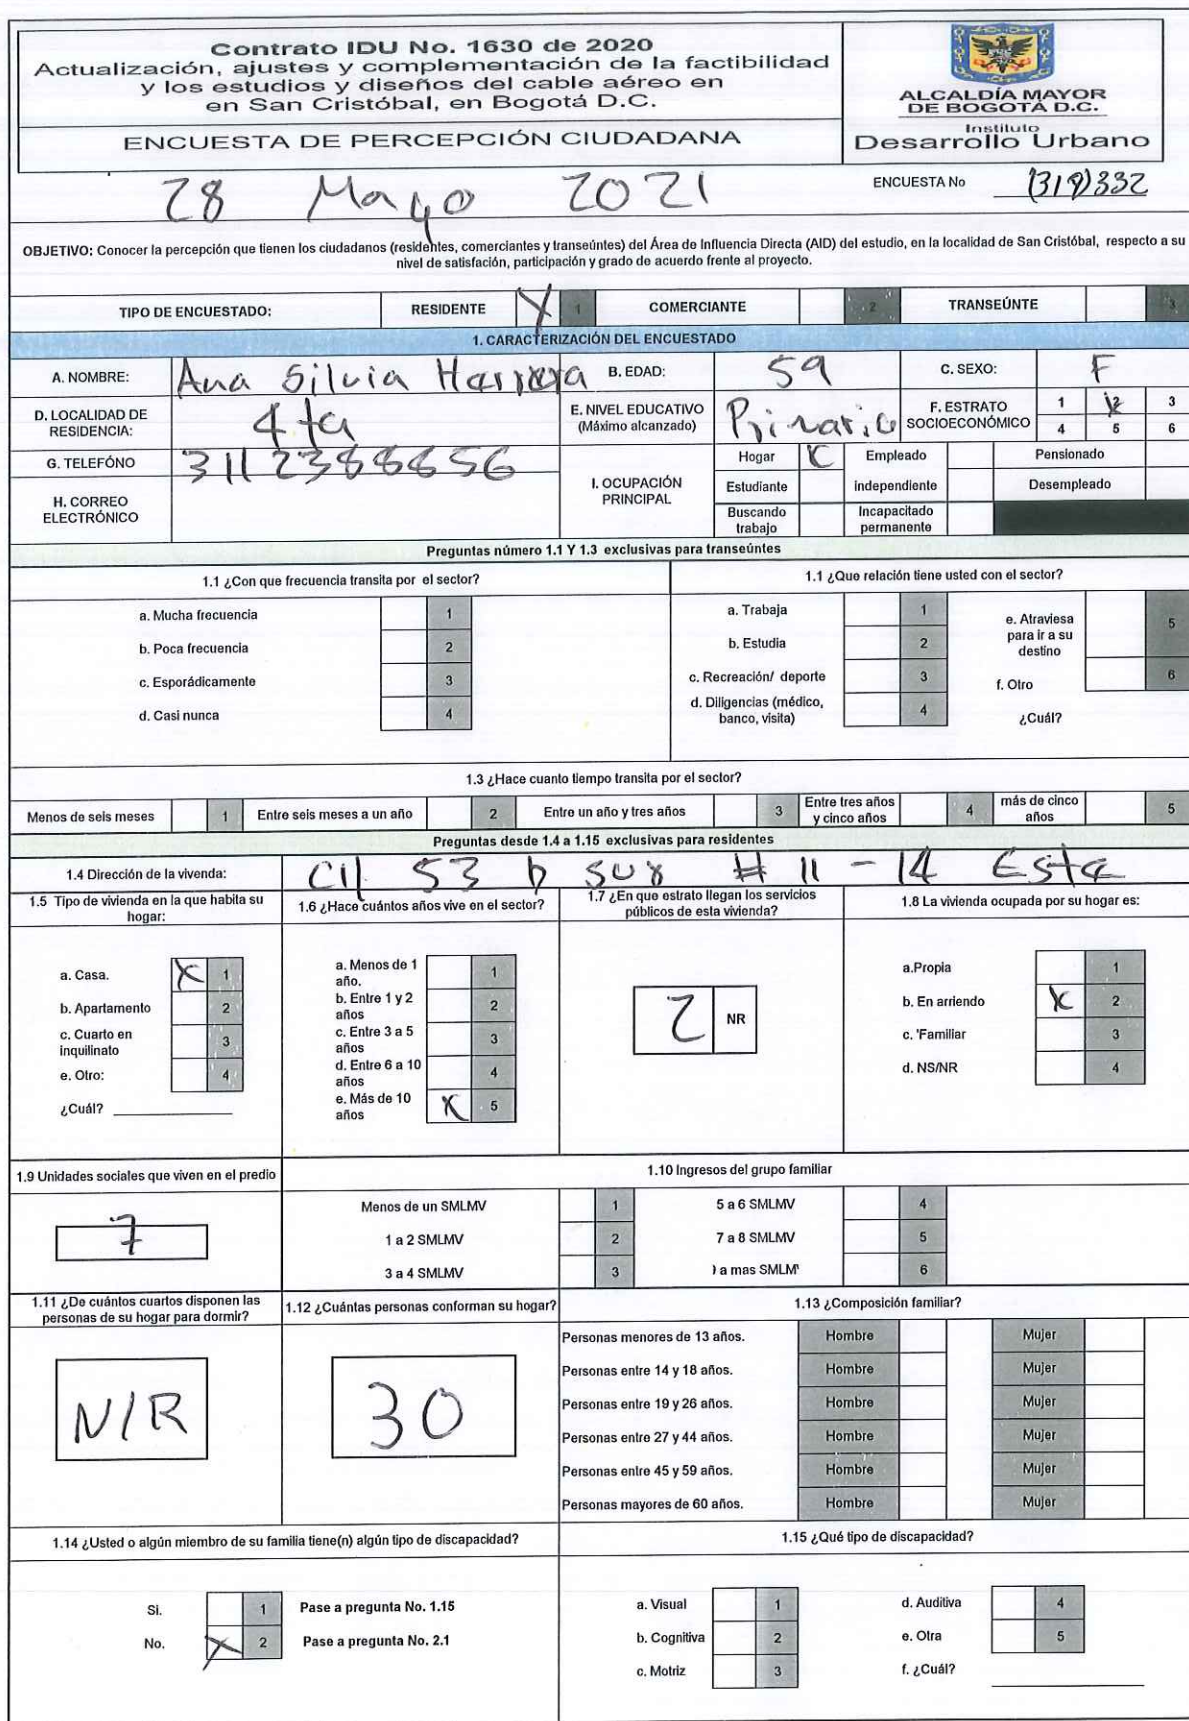 Contrato IDU No. 1630 de 2020
Actualización, ajustes y complementación de la factibilidad
y los estudios y diseños del cable aéreo en
en San Cristóbal, en Bogotá D.C.
ENCUESTA DE PERCEPCIÓN CIUDADANA
ALCALDÍA MAYOR
DE BOGOTÁ D.C.
Instituto
Desarrollo Urbano
28 Mayo 2021
ENCUESTA No (319)332
OBJETIVO: Conocer la percepción que tienen los ciudadanos (residentes, comerciantes y transeúntes) del Área de Influencia Directa (AID) del estudio, en la localidad de San Cristóbal, respecto a su
nivel de satisfacción, participación y grado de acuerdo frente al proyecto.
TIPO DE ENCUESTADO: RESIDENTE X 1 COMERCIANTE 2 TRANSEÚNTE 3
1. CARACTERIZACIÓN DEL ENCUESTADO
A. NOMBRE: Ana Silvia Herrera B. EDAD: 59 C. SEXO: F
D. LOCALIDAD DE RESIDENCIA: 4ta E. NIVEL EDUCATIVO (Máximo alcanzado) Primaria F. ESTRATO SOCIOECONÓMICO 1 X2 3 4 5 6
G. TELEFÓNO 3112388656
H. CORREO ELECTRÓNICO
I. OCUPACIÓN PRINCIPAL
Hogar X Empleado Pensionado
Estudiante independiente Desempleado
Buscando trabajo Incapacitado permanente
Preguntas número 1.1 Y 1.3 exclusivas para transeúntes
1.1 ¿Con que frecuencia transita por el sector?
a. Mucha frecuencia 1
b. Poca frecuencia 2
c. Esporádicamente 3
d. Casi nunca 4
1.1 ¿Que relación tiene usted con el sector?
a. Trabaja 1
b. Estudia 2
c. Recreación/ deporte 3
d. Diligencias (médico, banco, visita) 4
e. Atraviesa para ir a su destino 5
f. Otro 6
¿Cuál?
1.3 ¿Hace cuanto tiempo transita por el sector?
Menos de seis meses 1 Entre seis meses a un año 2 Entre un año y tres años 3 Entre tres años y cinco años 4 más de cinco años 5
Preguntas desde 1.4 a 1.15 exclusivas para residentes
1.4 Dirección de la vivenda: Cll 53 b sur # 11 - 14 Este
1.5 Tipo de vivienda en la que habita su hogar:
a. Casa. X 1
b. Apartamento 2
c. Cuarto en inquilinato 3
e. Otro: 4
¿Cuál?
1.6 ¿Hace cuántos años vive en el sector?
a. Menos de 1 año. 1
b. Entre 1 y 2 años 2
c. Entre 3 a 5 años 3
d. Entre 6 a 10 años 4
e. Más de 10 años X 5
1.7 ¿En que estrato llegan los servicios públicos de esta vivienda?
2 NR
1.8 La vivienda ocupada por su hogar es:
a.Propia 1
b. En arriendo X 2
c. 'Familiar 3
d. NS/NR 4
1.9 Unidades sociales que viven en el predio
7
1.10 Ingresos del grupo familiar
Menos de un SMLMV 1 5 a 6 SMLMV 4
1 a 2 SMLMV 2 7 a 8 SMLMV 5
3 a 4 SMLMV 3 a mas SMLM 6
1.11 ¿De cuántos cuartos disponen las personas de su hogar para dormir?
N/R
1.12 ¿Cuántas personas conforman su hogar?
30
1.13 ¿Composición familiar?
Personas menores de 13 años. Hombre Mujer
Personas entre 14 y 18 años. Hombre Mujer
Personas entre 19 y 26 años. Hombre Mujer
Personas entre 27 y 44 años. Hombre Mujer
Personas entre 45 y 59 años. Hombre Mujer
Personas mayores de 60 años. Hombre Mujer
1.14 ¿Usted o algún miembro de su familia tiene(n) algún tipo de discapacidad?
Si. 1 Pase a pregunta No. 1.15
No. X 2 Pase a pregunta No. 2.1
1.15 ¿Qué tipo de discapacidad?
a. Visual 1 d. Auditiva 4
b. Cognitiva 2 e. Otra 5
c. Motriz 3 f. ¿Cuál?